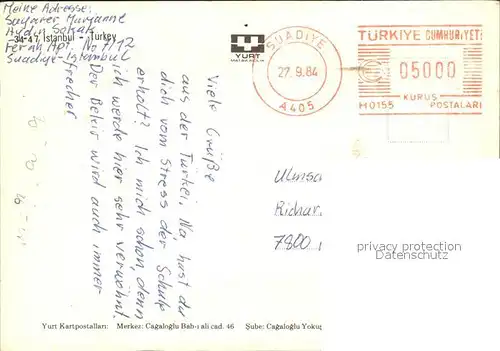 Meine Adresse:
Suyarer Maryanne
Aydın Sokak
34-47 Istanbul - Turkey
Ferah Apt. No 7/12
Suadiye-Istanbul
YURT
SUADIYE
27.9.84
A405
TÜRKİYE CUMHURİYETİ
05000
KURUŞ
H0155 POSTALARI
Viele Grüße
aus der Türkei. Na, hast du
dich vom Stress der Schule
erholt? Ich mich schon, denn
ich werde hier sehr verwöhnt.
Der Beleir wird auch immer
frecher
Ulmsa
Richar
7800
privacy protection
VERANDER
Yurt Kartpostalları: Merkez: Cağaloğlu Bab-ı ali cad. 46 Şube: Cağaloğlu Yokuş